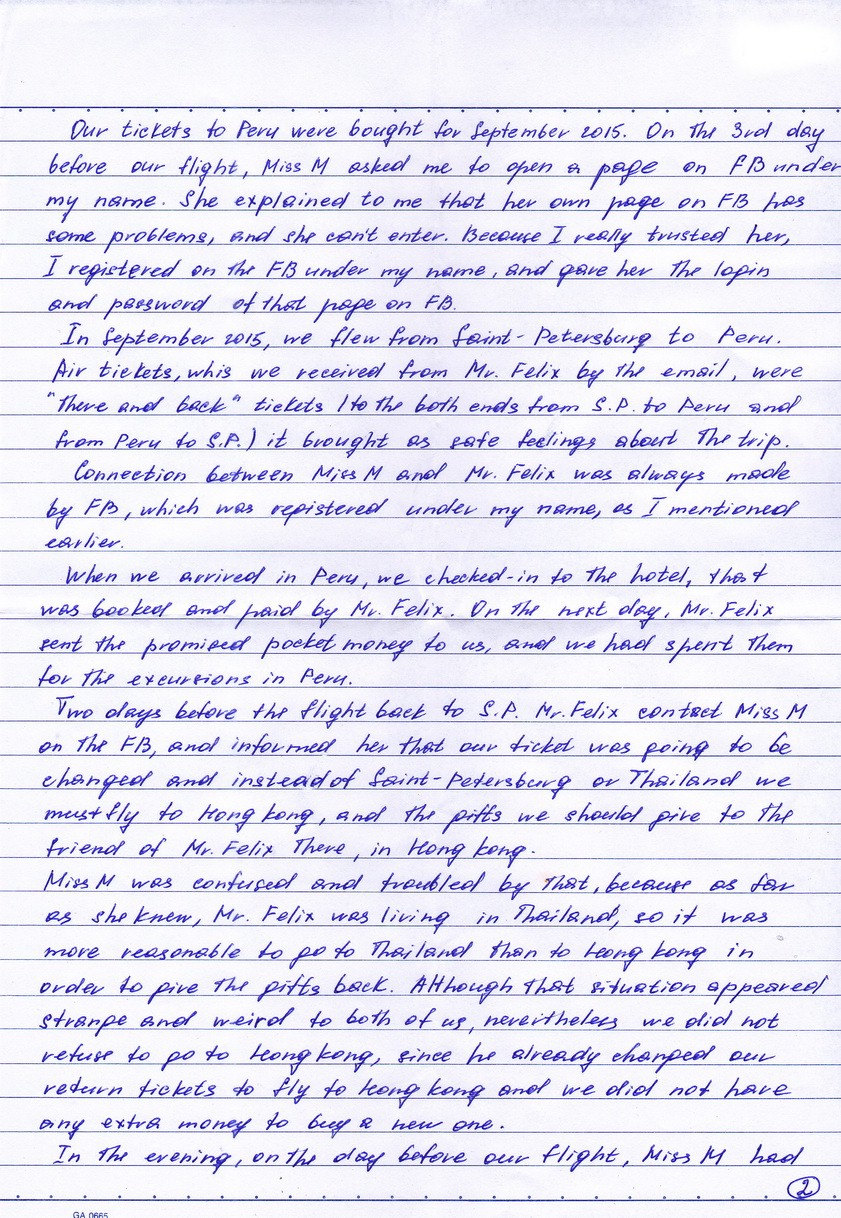 Our tickets to Peru were bought for September 2015. On the 3rd day
before our flight, Miss M asked me to open a page on FB under
my name. She explained to me that her own page on FB has
some problems, and she can't enter. Because I really trusted her,
I registered on the FB under my name, and gave her the login
and password of that page on FB.
In September 2015, we flew from Saint-Petersburg to Peru.
Air tickets, whis we received from Mr. Felix by the email, were
"there and back" tickets (to the both ends from S.P. to Peru and
from Peru to S.P.) it brought as safe feelings about the trip.
Connection between Miss M and Mr. Felix was always made
by FB, which was registered under my name, as I mentioned
earlier.
When we arrived in Peru, we checked-in to the hotel, that
was booked and paid by Mr. Felix. On the next day, Mr. Felix
sent the promised pocket money to us, and we had spent them
for the excursions in Peru.
Two days before the flight back to S.P. Mr. Felix contact Miss M
on the FB, and informed her that our ticket was going to be
changed and instead of Saint-Petersburg or Thailand we
must fly to Hong Kong, and the gifts we should give to the
friend of Mr. Felix There, in Hong Kong.
Miss M was confused and troubled by that, because as far
as she knew, Mr. Felix was living in Thailand, so it was
more reasonable to go to Thailand than to Hong Kong in
order to give the gifts back. Although that situation appeared
strange and weird to both of us, nevertheless we did not
refuse to go to Hong Kong, since he already changed our
return tickets to fly to Hong Kong and we did not have
any extra money to buy a new one.
In the evening, on the day before our flight, Miss M had
2
GA 0665